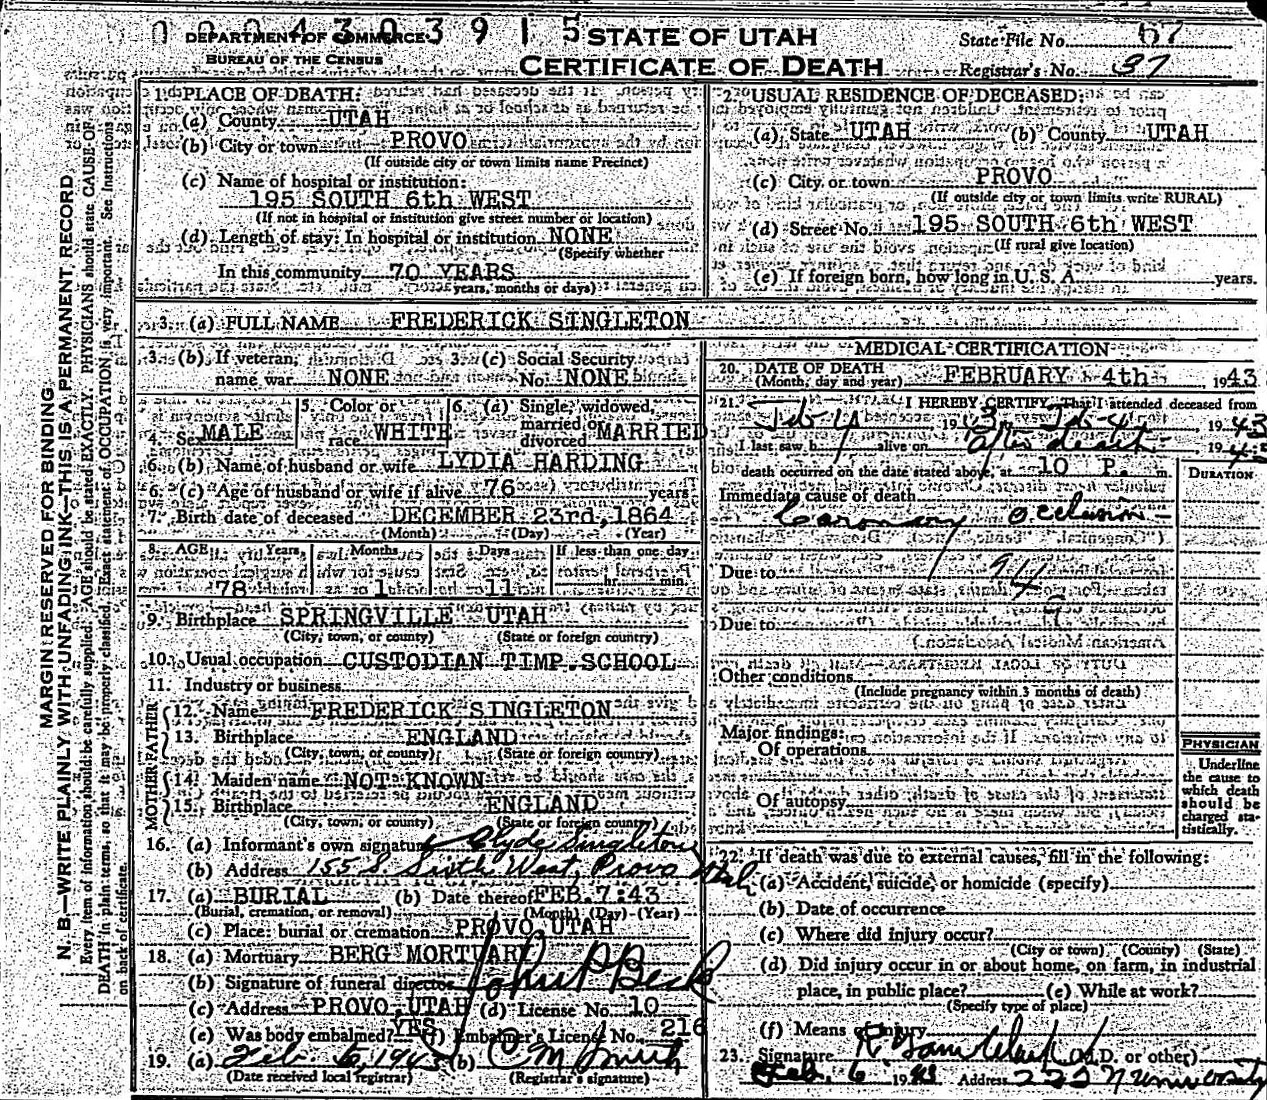 0004303915
DEPARTMENT OF COMMERCE
BUREAU OF THE CENSUS
STATE OF UTAH
CERTIFICATE OF DEATH
State File No. 67
Registrar's No. 37
MARGIN RESERVED FOR BINDING
N. B.—WRITE PLAINLY WITH UNFADING INK—THIS IS A PERMANENT RECORD
Every item of information should be carefully supplied. AGE should be stated EXACTLY. PHYSICIANS should state CAUSE OF
DEATH in plain terms, so that it may be properly classified. Exact statement of OCCUPATION is very important. See Instructions
on back of certificate.
1. PLACE OF DEATH:
(a) County UTAH
(b) City or town PROVO
(If outside city or town limits name Precinct)
(c) Name of hospital or institution:
195 SOUTH 6th WEST
(If not in hospital or institution give street number or location)
(d) Length of stay: In hospital or institution NONE
(Specify whether
In this community 70 YEARS
years, months or days)
2. USUAL RESIDENCE OF DECEASED:
(a) State UTAH (b) County UTAH
(c) City or town PROVO
(If outside city or town limits write RURAL)
(d) Street No. 195 SOUTH 6th WEST
(If rural give location)
(e) If foreign born, how long in U. S. A. years.
3. (a) FULL NAME FREDERICK SINGLETON
3. (b) If veteran, name war NONE
3. (c) Social Security No. NONE
4. Sex MALE
5. Color or race WHITE
6. (a) Single, widowed, married or divorced MARRIED
6. (b) Name of husband or wife LYDIA HARDING
6. (c) Age of husband or wife if alive 76 years
7. Birth date of deceased DECEMBER 23rd, 1864
(Month) (Day) (Year)
8. AGE Years Months Days If less than one day
78 1 11 hr. min.
9. Birthplace SPRINGVILLE UTAH
(City, town, or county) (State or foreign country)
10. Usual occupation CUSTODIAN TIMP. SCHOOL
11. Industry or business
FATHER
12. Name FREDERICK SINGLETON
13. Birthplace ENGLAND
(City, town, or county) (State or foreign country)
MOTHER
14. Maiden name NOT KNOWN
15. Birthplace ENGLAND
(City, town, or county) (State or foreign country)
16. (a) Informant's own signature Clyde Singleton
(b) Address 155 S. Sixth West, Provo Utah
17. (a) BURIAL (b) Date thereof FEB.7:43
(Burial, cremation, or removal) (Month) (Day) (Year)
(c) Place: burial or cremation PROVO UTAH
18. (a) Mortuary BERG MORTUARY
(b) Signature of funeral director John P Beck
(c) Address PROVO, UTAH (d) License No. 10
(e) Was body embalmed? YES (f) Embalmer's License No. 216
19. (a) Feb. 6, 1943 (b) C M Smith
(Date received local registrar) (Registrar's signature)
MEDICAL CERTIFICATION
20. DATE OF DEATH
(Month, day and year) FEBRUARY 4th, 1943
21. I HEREBY CERTIFY, That I attended deceased from
Feb 4 1943, Feb 4 1943
I last saw h alive on after death 1943
death occurred on the date stated above, at 10 P. m.
DURATION
Immediate cause of death
Coronary occlusion
Due to 94
Due to
Other conditions
(Include pregnancy within 3 months of death)
Major findings:
Of operations
Of autopsy
PHYSICIAN
Underline
the cause to
which death
should be
charged sta-
tistically.
22. If death was due to external causes, fill in the following:
(a) Accident, suicide, or homicide (specify)
(b) Date of occurrence
(c) Where did injury occur?
(City or town) (County) (State)
(d) Did injury occur in or about home, on farm, in industrial
place, in public place? (e) While at work?
(Specify type of place)
(f) Means of injury
23. Signature (M.D. or other)
Feb. 6 1943 Address 222 N University